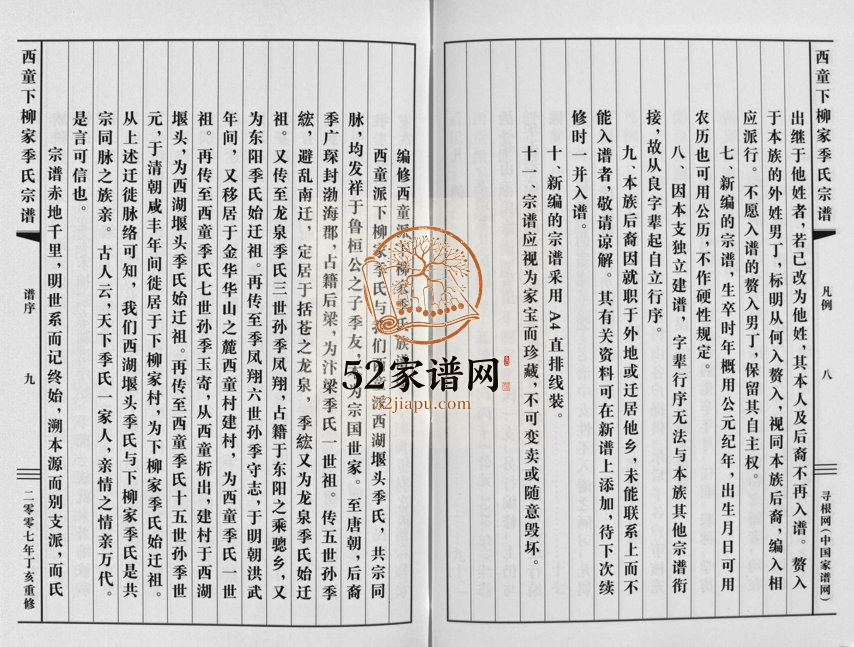 西童下柳家季氏宗谱
凡例
八
寻根网（中国家谱网）
出继于他姓者，若已改为他姓，其本人及后裔不再入谱。赘入
于本族的外姓男丁，标明从何入赘入，视同本族后裔，编入相
应派行。不愿入谱的赘入男丁，保留其自主权。
七、新编的宗谱，生卒时年概用公元纪年，出生月日可用
农历也可用公历，不作硬性规定。
八、因本支独立建谱，字辈行序无法与本族其他宗谱衔
接，故从良字辈起自立行序。
九、本族后裔因就职于外地或迁居他乡，未能联系上而不
能入谱者，敬请谅解。其有关资料可在新谱上添加，待下次续
修时一并入谱。
十、新编的宗谱采用A4直排线装。
十一、宗谱应视为家宝而珍藏，不可变卖或随意毁坏。
编修西童派下柳家季氏族谱
西童派下柳家季氏与我们西童派西湖堰头季氏，共宗同
脉，均发祥于鲁桓公之子季友，本为宗国世家。至唐朝，后裔
季广琛封渤海郡，占籍后梁，为汴梁季氏一世祖。传五世孙季
纮，避乱南迁，定居于括苍之龙泉，季纮又为龙泉季氏始迁
祖。又传至龙泉季氏三世孙季凤翔，占籍于东阳之乘骢乡，又
为东阳季氏始迁祖。再传至季凤翔六世孙季守志，于明朝洪武
年间，又移居于金华华山之麓西童村建村，为西童季氏一世
祖。再传至西童季氏七世孙季玉寄，从西童析出，建村于西湖
堰头，为西湖堰头季氏始迁祖。再传至西童季氏十五世孙季世
元，于清朝咸丰年间徙居于下柳家村，为下柳家季氏始迁祖。
从上述迁徙脉络可知，我们西湖堰头季氏与下柳家季氏是共
宗同脉之族亲。古人云，天下季氏一家人，亲情之情亲万代。
是言可信也。
宗谱赤地千里，明世系而记终始，溯本源而别支派，而氏
西童下柳家季氏宗谱
谱序
九
二零零七年丁亥重修
52家谱网
52jiapu.com